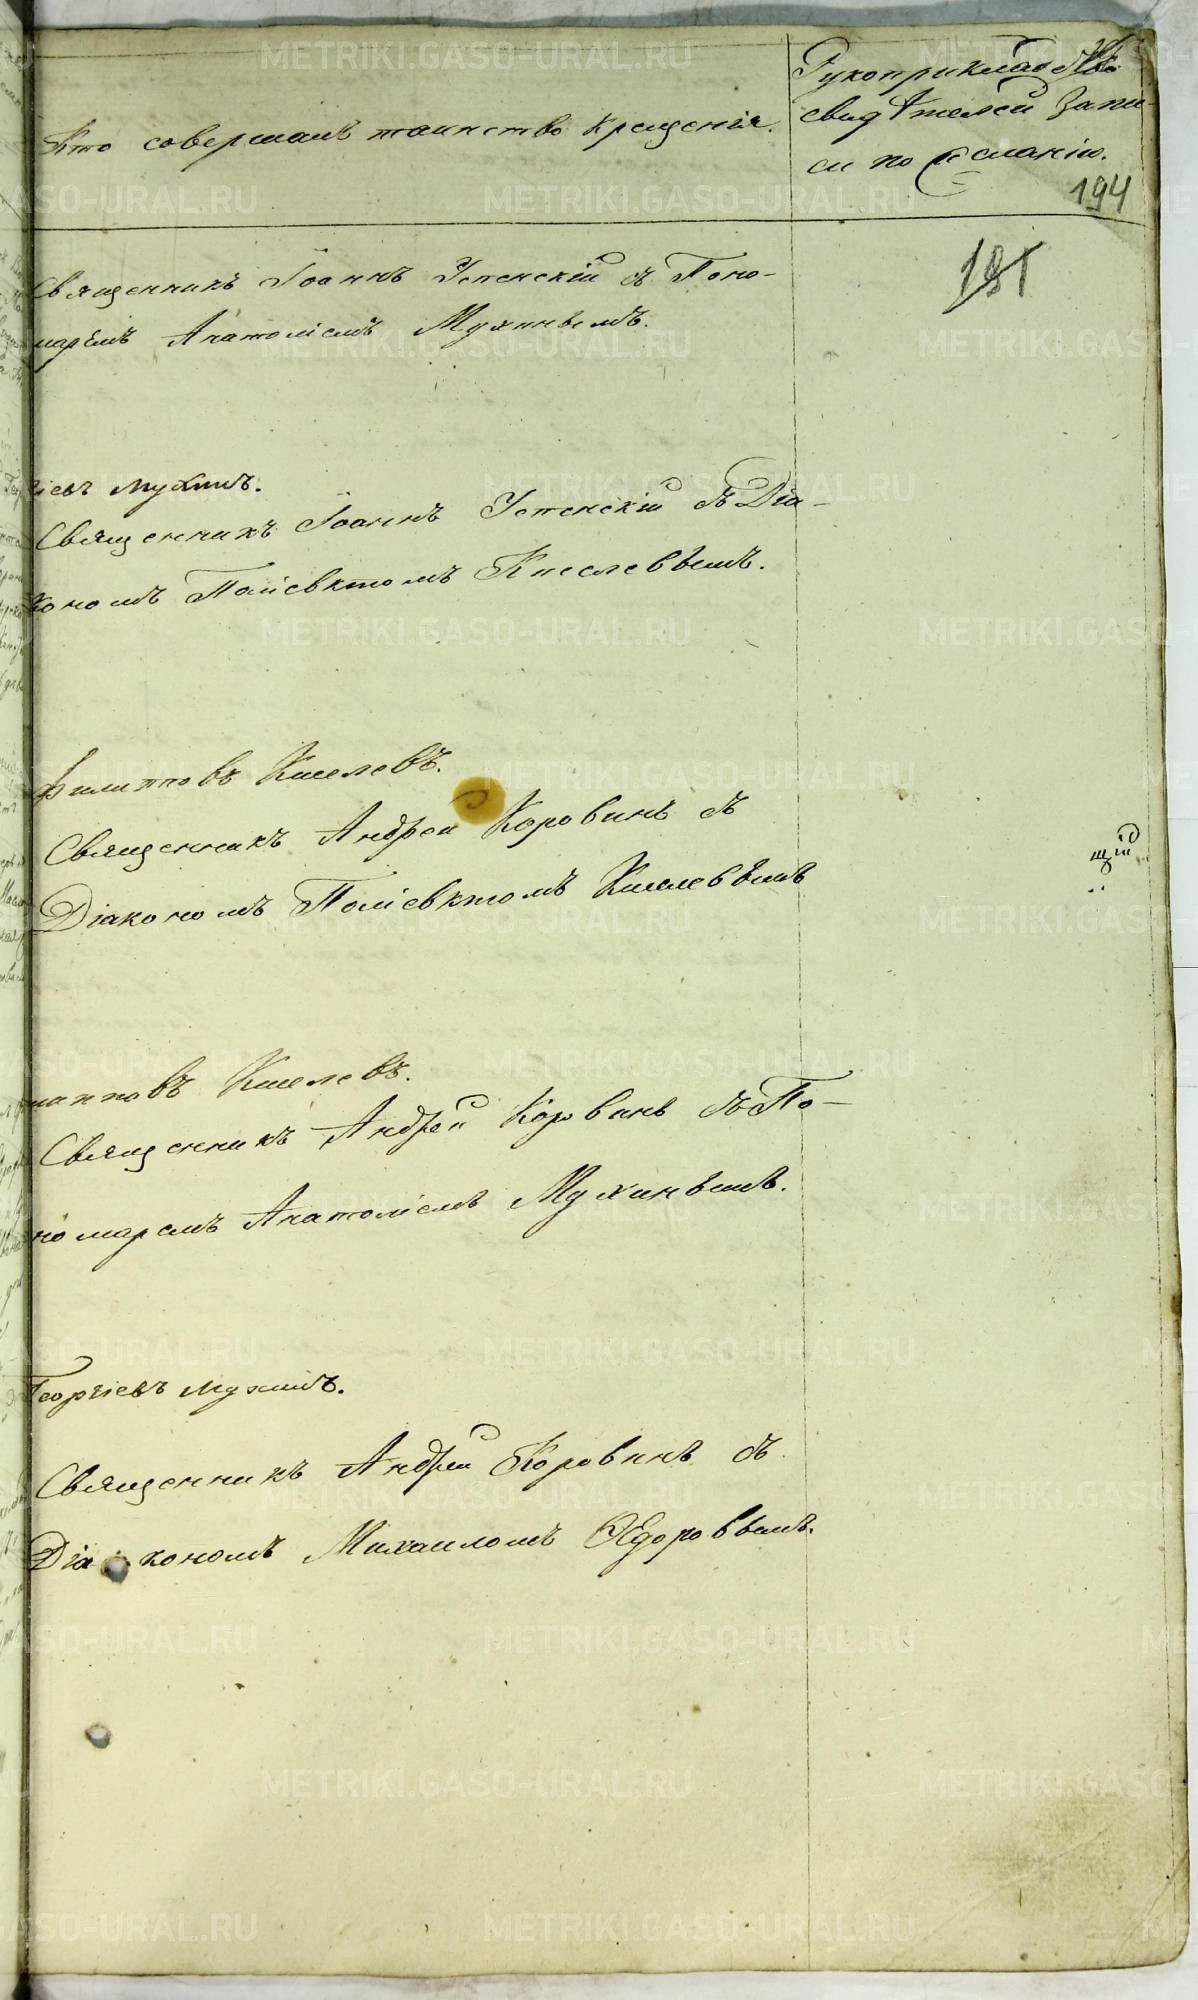 Кто совершалъ таинство крещенія.
Рукоприкладство
свидѣтелей запи-
си по желанію.
194
181
Священникъ Іоаннъ Успенскій съ Поно-
марёмъ Анатоліемъ Мухинымъ.
гіевъ Мухинъ.
Священникъ Іоаннъ Успенскій съ Діа-
кономъ Поліевктомъ Киселевымъ.
Филипповъ Киселевъ.
Священникъ Андрей Коровинъ съ
Діакономъ Поліевктомъ Киселевымъ
липповъ Киселевъ.
Священникъ Андрей Коровинъ съ По-
номаремъ Анатоліемъ Мухинымъ.
Георгіевъ Мухинъ.
Священникъ Андрей Коровинъ съ
Діакономъ Михаиломъ Ѳедоровымъ.